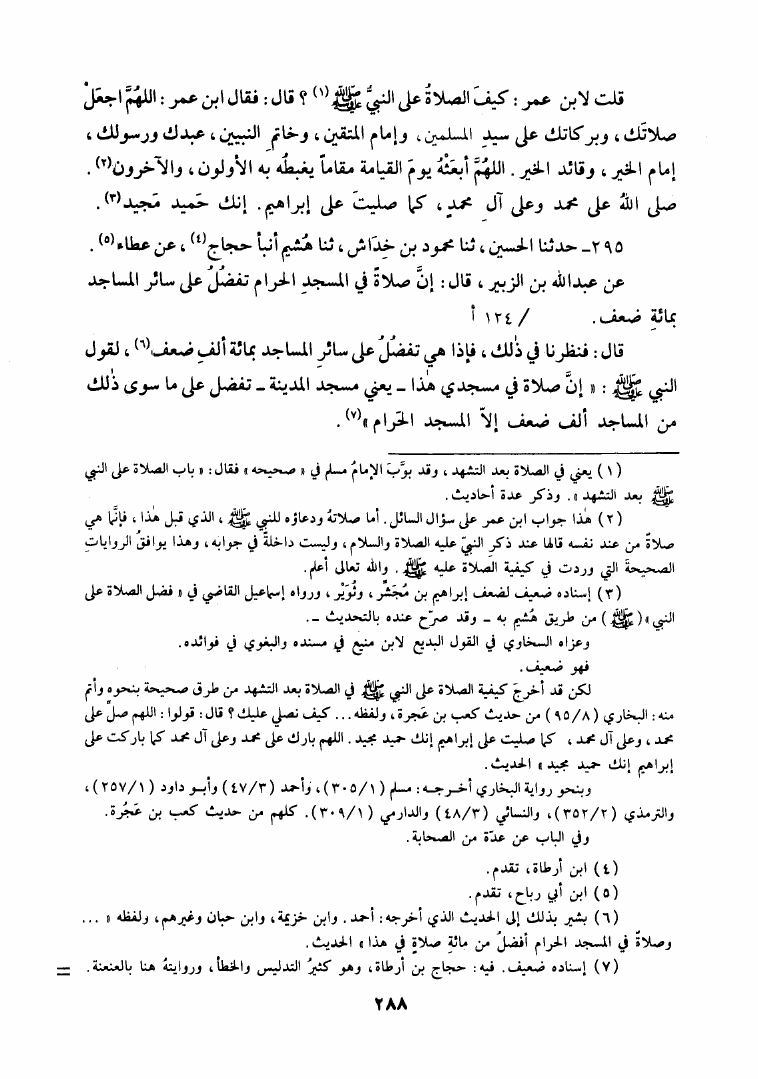 قلت لابن عمر : كيفَ الصلاةُ على النبيُّ ﷺ (١) ؟ قال : فقال ابن عمر : اللهُمَّ اجعَلْ
صلاتَك ، وبركاتك على سيدِ المسلمين ، وإمام المتقين ، وخاتمِ النبيين ، عبدك ورسولك ،
إمام الخير ، وقائد الخير . اللهُمَّ أبعَثْهُ يومَ القيامة مقاماً يغبطُه به الأولون ، والآخرون (٢) .
صلى اللهُ على محمد وعلى آلِ محمدٍ ، كما صليتَ على إبراهيم . إنك حَميد مَجيد (٣) .
٢٩٥ـ حدثنا الحسين ، ثنا محمود بن خِدَاش ، ثنا هُشيم أنبأ حجاج (٤) ، عن عطاء (٥) .
عن عبدالله بن الزبير ، قال : إنَّ صلاةً في المسجدِ الحرام تفضُلُ على سائر المساجد
بمائةِ ضعف . / ١٢٤ أ
قال : فنظرنا في ذٰلك ، فإذا هي تفضُلُ على سائرِ المساجد بمائة ألفِ ضعف (٦) ، لقول
النبي ﷺ : « إنَّ صلاة في مسجدي هٰذا ـ يعني مسجد المدينة ـ تفضل على ما سوى ذٰلك
من المساجد ألف ضعف إلاّ المسجد الحَرام » (٧) .
(١) يعني في الصلاة بعد التشهد ، وقد بوَّبَ الإمامُ مسلم في « صحيحه » فقال : « باب الصلاة على النبي
ﷺ بعد التشهد » . وذكر عدة أحاديث .
(٢) هٰذا جواب ابن عمر على سؤال السائل . أما صلاتهُ ودعاؤه للنبي ﷺ ، الذي قبل هٰذا ، فإنَّما هي
صلاةٌ من عند نفسه قالها عند ذكرِ النبيّ عليه الصلاة والسلام ، وليست داخلةً في جوابه ، وهذا يوافقُ الرواياتِ
الصحيحةَ التي وردت في كيفية الصلاة عليه ﷺ . والله تعالى أعلم .
(٣) إسناده ضعيف لضعف إبراهيم بن مُجَشِّر ، وثُوَيْر ، ورواه إسماعيل القاضي في « فضل الصلاة على
النبي » (ﷺ) من طريق هُشيم به ـ وقد صرّح عنده بالتحديث ـ .
وعزاه السخاوي في القول البديع لابن منيع في مسنده والبغوي في فوائده .
فهو ضعيف .
لكن قد أخرجَ كيفية الصلاة على النبي ﷺ في الصلاة بعد التشهد من طرق صحيحة بنحوه وأتم
منه : البخاري (٩٥/٨) من حديث كعب بن عَجرة ، ولفظه ... كيف نصلي عليك ؟ قال : قولوا : اللهم صلِّ على
محمد ، وعلى آل محمد ، كما صليت على إبراهيم إنك حميد مجيد . اللهم بارك على محمد وعلى آل محمد كما باركت على
إبراهيم إنك حميد مجيد » الحديث .
وبنحو رواية البخاري أخرجه : مسلم (٣٠٥/١) ، وأحمد (٤٧/٣) وأبو داود (٢٥٧/١) ،
والترمذي (٣٥٢/٢) ، والنسائي (٤٨/٣) والدارمي (٣٠٩/١) . كلهم من حديث كعب بن عَجُرة .
وفي الباب عن عدّة من الصحابة .
(٤) ابن أرطاة ، تقدم .
(٥) ابن أبي رباح ، تقدم .
(٦) بشير بذلك إلى الحديث الذي أخرجه : أحمد . وابن خزيمة ، وابن حبان وغيرهم ، ولفظه « ...
وصلاةٌ في المسجد الحرام أفضلُ من مائةِ صلاةٍ في هذا » الحديث .
(٧) إسناده ضعيف . فيه : حجاج بن أرطاة ، وهو كثيرُ التدليس والخطأ ، وروايتهُ هنا بالعنعنة . =
٢٨٨